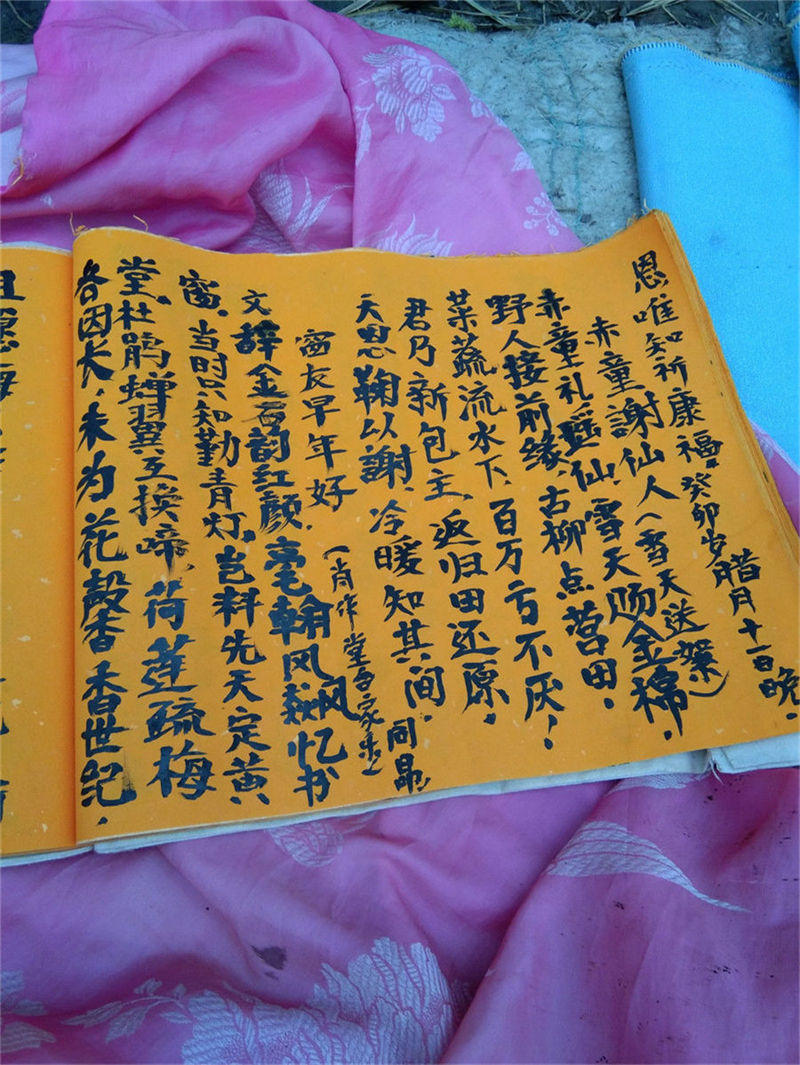 恩唯知祈康福。癸卯岁腊月十一日晚。
赤童謝仙人(雪天送絮)
赤童礼瑶仙,雪天赐金棉,
野人接前缘,古柳点营田,
菜蔬流水下,百万亏不厌!
君乃新包主,返归田还原,
天恩鞠以謝,冷暖知其间
同
窗友早年好
(肖作堂
文辞金石韵红颜,毫翰风飙忆书
窗,当时只知勤青灯,岂料先天定黄
堂,杜鹃蝉翼互换啼,荷莲疏梅
各因长,未为花殼香,香世纪,